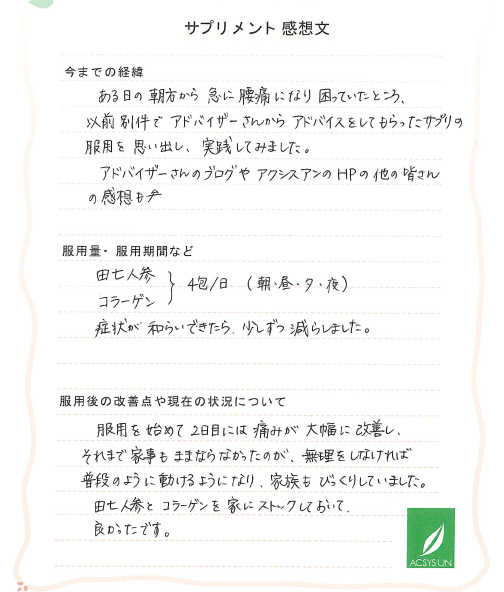 サプリメント 感想文
今までの経緯
ある日の朝方から急に腰痛になり困っていたところ、
以前別件でアドバイザーさんからアドバイスをしてもらったサプリの
服用を思い出し、実践してみました。
アドバイザーさんのブログやアクシスアンのHPの他の皆さん
の感想も
服用量・服用期間など
田七人参
コラーゲン
4包/日 (朝・昼・夕・夜)
症状が和らいできたら、少しずつ減らしました。
服用後の改善点や現在の状況について
服用を始めて2日目には痛みが大幅に改善し、
それまで家事もままならなかったのが、無理をしなければ
普段のように動けるようになり、家族もびっくりしていました。
田七人参とコラーゲンを家にストックしておいて、
良かったです。
ACSYSUN